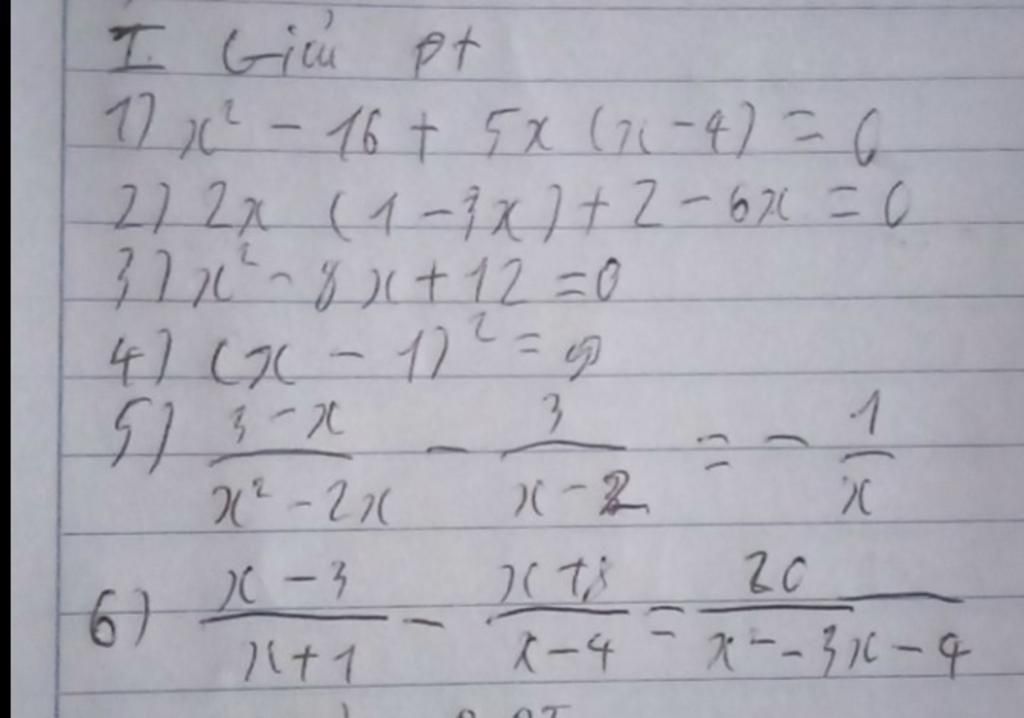 I. Giải pt
1) x² - 16 + 5x (x - 4) = 0
2) 2x (1 - 3x) + 2 - 6x = 0
3) x² - 8x + 12 = 0
4) (x - 1)² =
5) (3 - x)/(x² - 2x) - 3/(x - 2) = - 1/x
6) (x - 3)/(x + 1) - (x + 3)/(x - 4) = 20/(x - - 3x - 4)